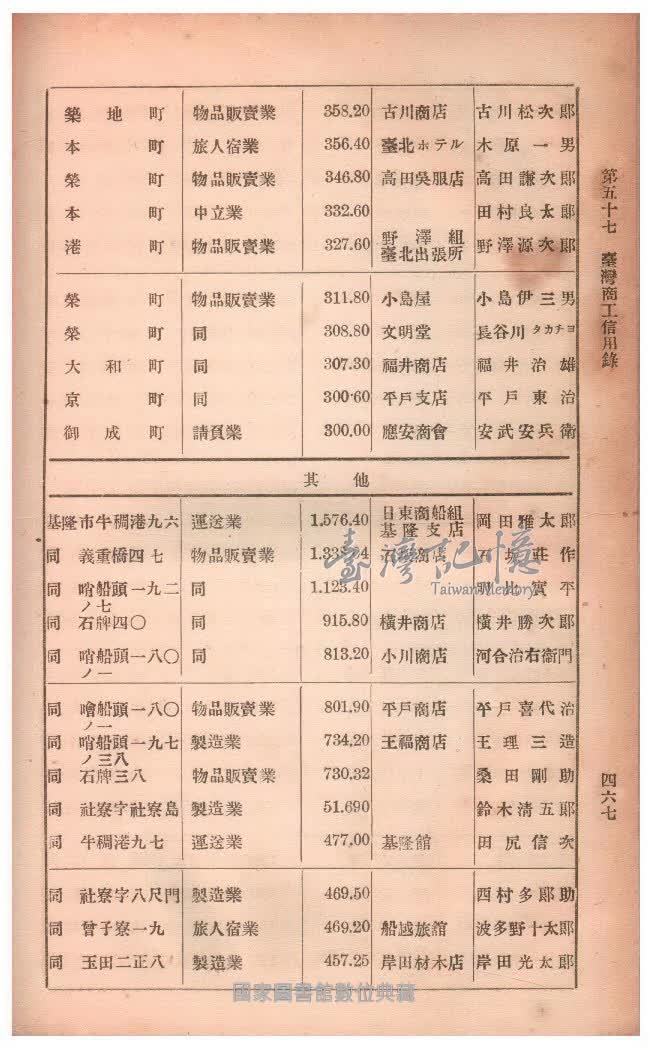 第五十七 臺灣商工信用錄
築地町 物品販賣業 358.20 古川商店 古川松次郎
本町 旅人宿業 356.40 臺北ホテル 木原一男
榮町 物品販賣業 346.80 高田吳服店 高田謙次郎
本町 中立業 332.60 田村良太郎
港町 物品販賣業 327.60 野澤組臺北出張所 野澤源次郎
榮町 物品販賣業 311.80 小島屋 小島伊三男
榮町 同 308.80 文明堂 長谷川タカチヨ
大和町 同 307.30 福井商店 福井治雄
京町 同 300.60 平戶支店 平戶東治
御成町 請負業 300.00 應安商會 安武安兵衛
其他
基隆市牛稠港九六 運送業 1,576.40 日東商船組基隆支店 岡田雅太郎
同 義重橋四七 物品販賣業 石坂莊作
同 哨船頭一九二ノ七 同 1,123.40 實平
同 石牌四〇 同 915.80 橫井商店 橫井勝次郎
同 哨船頭一八〇ノ一 同 813.20 小川商店 河合治右衞門
同 噲船頭一八〇ノ一 物品販賣業 801.90 平戶商店 平戶喜代治
同 哨船頭一九七ノ三八 製造業 734.20 王福商店 王理三造
同 石牌三八 物品販賣業 730.32 桑田剛助
同 社寮字社寮島 製造業 51.690 鈴木清五郎
同 牛稠港九七 運送業 477.00 基隆館 田尻信次
同 社寮字八尺門 製造業 469.50 西村多郎助
同 曾子寮一九 旅人宿業 469.20 船越旅館 波多野十太郎
同 玉田二正八 製造業 457.25 岸田材木店 岸田光太郎
四六七
臺灣記憶
Taiwan Memory
國家圖書館數位典藏